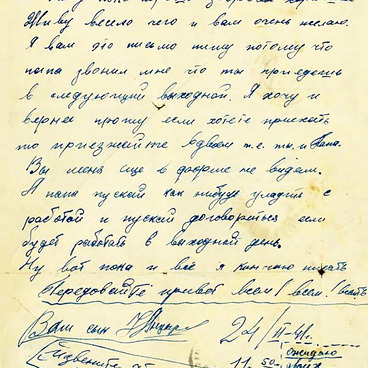 пока
Живу весело чего и вам очень желаю.
Я вам это письмо пишу потому что
папа звонил мне что ты приедешь
в следующий выходной. Я хочу и
вернее прошу если хотете приехать
то приезжайте вдвоем т.е. ты и Папа.
Вы меня еще в форме не видели.
А папа пускай как нибудь уладит с
работой и пускай договориться если
будет работать в выходной день.
Ну вот пока и всё я кончаю писать
Передовайте привет всем! всем!
Ваш сын 24/II-41г.
Извените 11 50
ожидаю